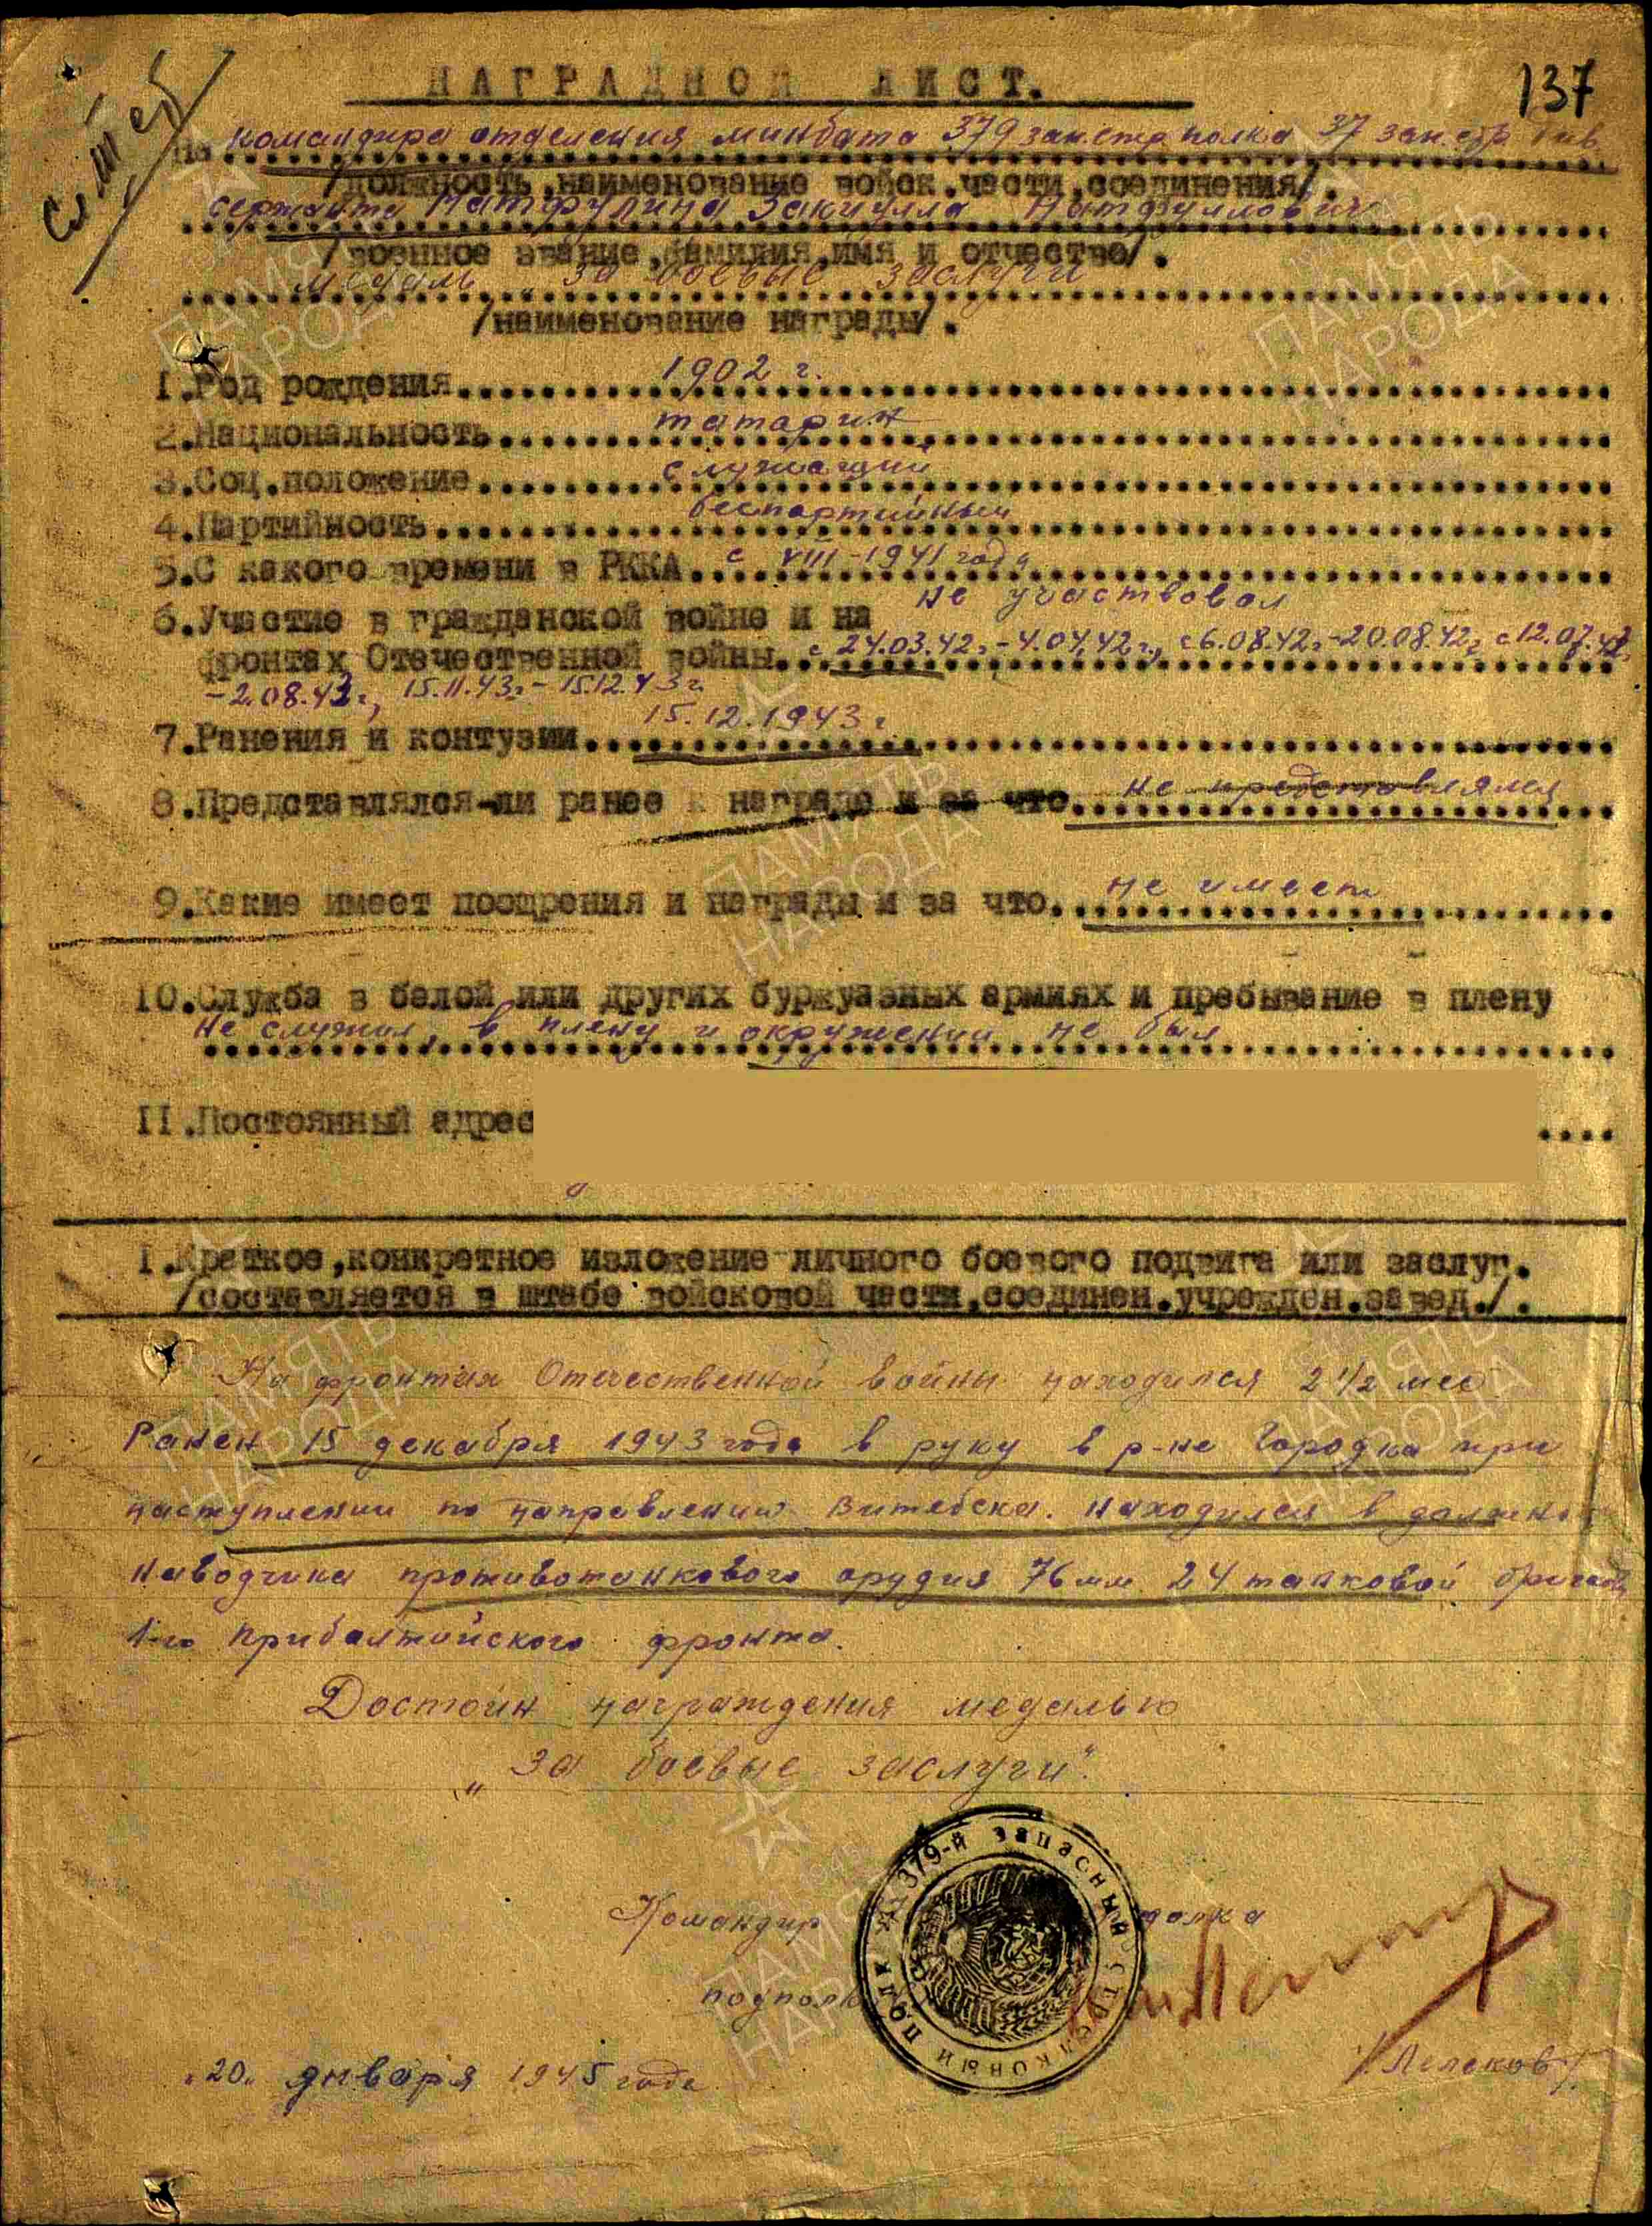 137
НАГРАДНОЙ ЛИСТ.
на командира отделения минбата 379 зап.стр полка 37 зап.стр. див.
/должность, наименование войск.части, соединения/.
сержанта Закиулла
/военное звание, фамилия, имя и отчество/.
медаль „за боевые заслуги
/наименование награды/.
1.Год рождения 1902 г.
2.Национальность татарин
3.Соц.положение служащий
4.Партийность беспартийный
5.С какого времени в РККА с VIII-1941 года
6.Участие в гражданской войне и на не участвовал
фронтах Отечественной войны с 24.03.42г.-4.04.42г., с 6.08.42г.-20.08.42г, с 12.07.43
-2.08.43г, 15.11.43г.-15.12.43г
7.Ранения и контузии 15.12.1943г
8.Представлялся-ли ранее к награде и за что не представлялся
9.Какие имеет поощрения и награды и за что не имеет
10.Служба в белой или других буржуазных армиях и пребывание в плену
не служил, в плену и окружении не был
11.Постоянный адрес
I.Краткое, конкретное изложение личного боевого подвига или заслуг.
/составляется в штабе войсковой части, соединен.учрежден.завед./.
На фронтах Отечественной войны находился 2 1/2 мес.
Ранен 15 декабря 1943 года в руку в р-не Городка при
наступлении по направлению Витебска. Находился в должно
наводчика противотанкового орудия 76 мм 24 танковой бригады
1-го Прибалтийского фронта.
Достоин награждения медалью
„за боевые заслуги".
Командир полка
подполк
379-й запасный стрелковый полк
„20" января 1945 года